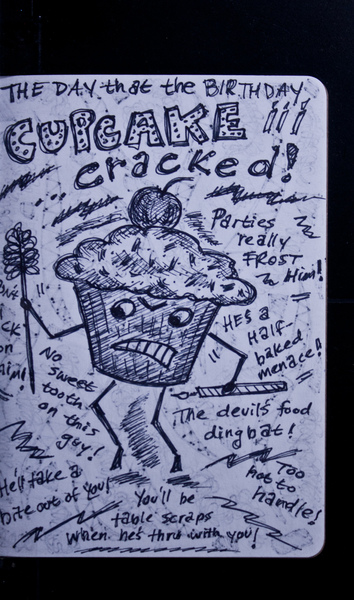 THE DAY that the BIRTHDAY
CUPCAKE iii
cracked!
Parties
really
FROST
Him!
HE'S a
HALF-
baked
menace!!
on
him!
No
sweet
tooth
on this
guy!
The devil's food
dingbat!
He'll take a
bite out of you!
Too
hot to
handle!
You'll be
table scraps
when he's thru with you!